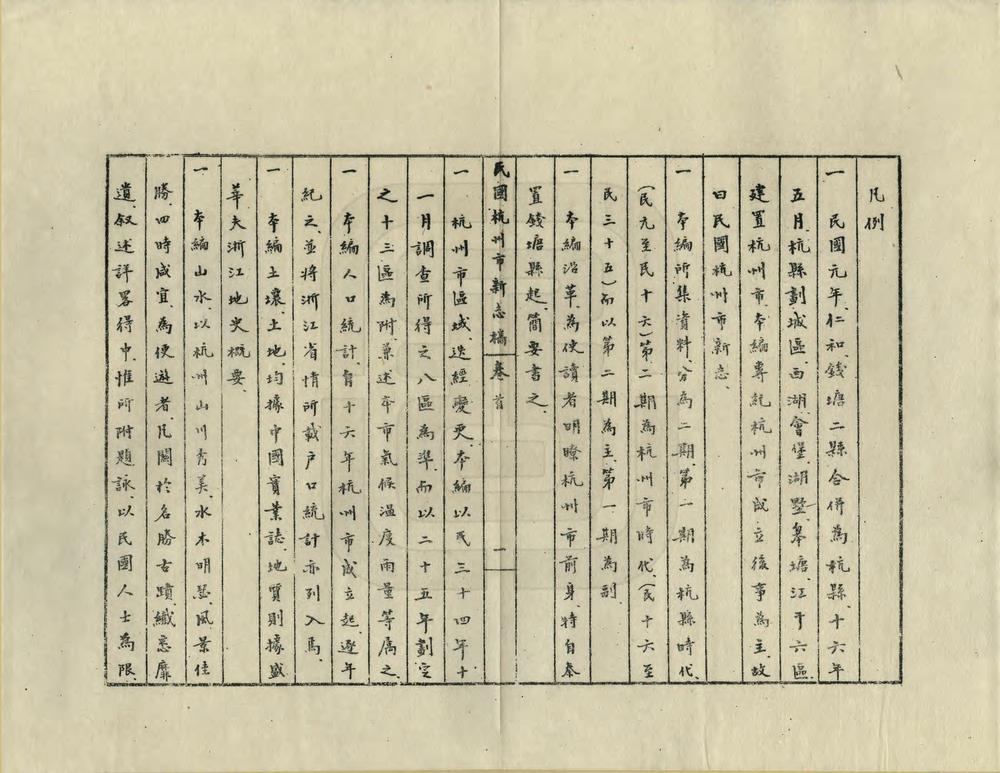 凡例
一 民國元年、仁和、錢塘二縣合併為杭縣、十六年
五月、杭縣劃城區西湖、會堡、湖墅、皋塘、江干六區、
建置杭州市、本編專紀杭州市成立後事為主、故
曰民國杭州市新志、
一 本編所集資料、分為二期、第一期為杭縣時代、
(民元至民十六)第二期為杭州市時代、(民十六至
民三十五)而以第二期為主、第一期為副
一 本編沿革、為使讀者明瞭杭州市前身、特自秦
置錢塘縣起、簡要書之、
民國杭州市新志稿 卷首 一
一 杭州市區域、迭經變更、本編以民三十四年十
一月調查所得之八區為準、而以二十五年劃定
之十三區為附、兼述本市氣候溫度雨量等屬之、
一 本編人口統計、自十六年杭州市成立起、逐年
紀之、並將浙江省情所載户口統計亦列入焉、
一 本編土壤、土地、均據中國實業誌、地質則據盛
華夫浙江地史概要、
一 本編山水、以杭州山川秀美、水木明瑟、風景佳
勝、四時咸宜、為便遊者、凡關於名勝古蹟、纖悉靡
遺、叙述詳畧得中、惟所附題詠、以民國人士為限、